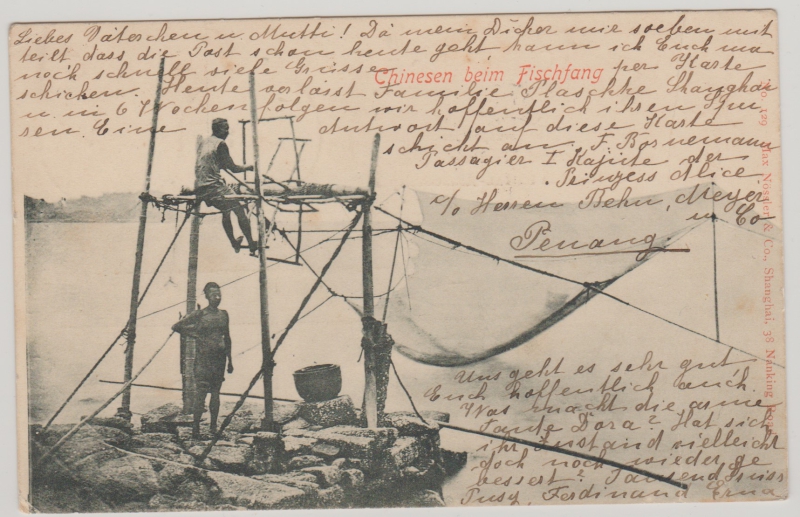 Liebes Väterchen u. Mutti! Da mein Dicker mir soeben mit
teilt dass die Post schon heute geht kann ich Euch nur
noch schnell viele Grüsse per Karte
schicken. Heute verlässt Familie Plaschke Shanghai
u. in 6 Wochen folgen wir hoffentlich ihren
sen. Eine Antwort auf diese Karte
schickt an F. Bornemann
Passagier I Kajüte der
Prinzess Alice
c/o Herren Behn, Meyer
u Co
Penang.
Chinesen beim Fischfang
No. 129 Max Nössler & Co., Shanghai, 38 Nanking Road
Uns geht es sehr gut
Euch hoffentlich auch.
Was macht die arme
Tante Dora? Hat sich
ihr Zustand vielleicht
doch noch wieder ge
bessert? Tausend Grüss
Pusy, Ferdinand Erna